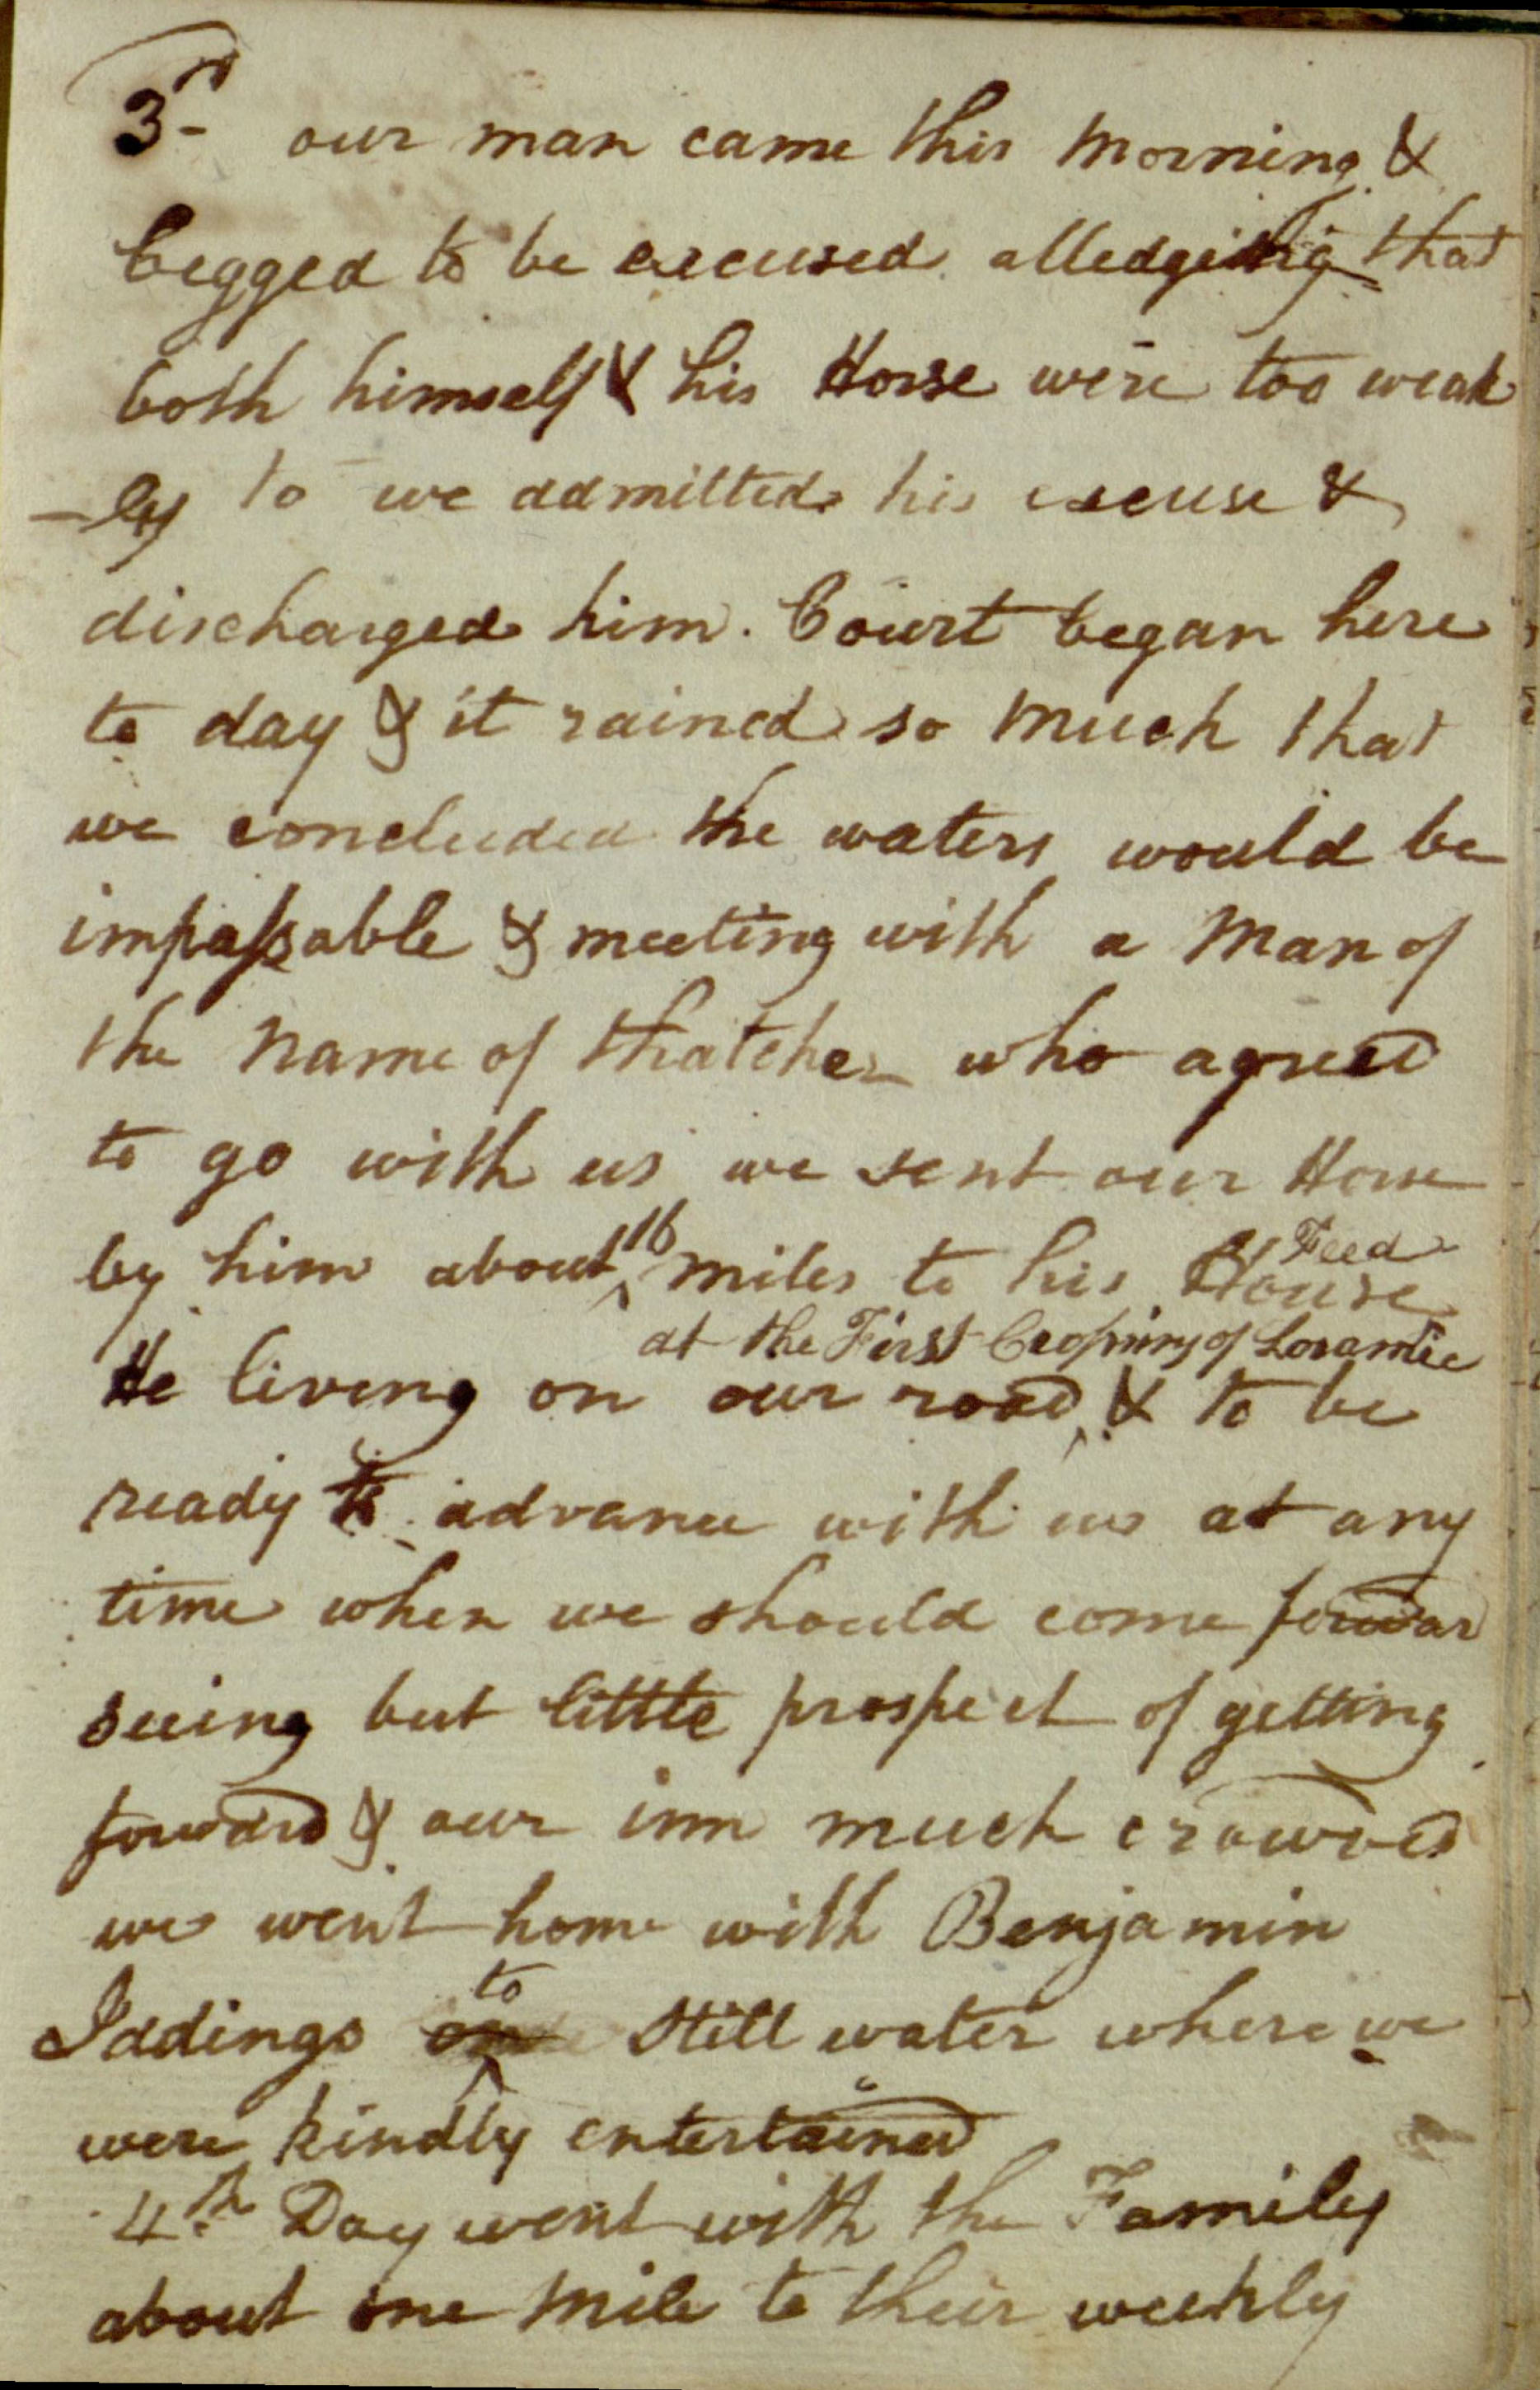 3rd our man came this morning &
begged to be excused alledging that
both himself & his Horse were too weak
-ly to we admitted his excuse &
discharged him. Court began here
to day & it rained so much that
we concluded the waters would be
impassable & meeting with a man of
the name of thatcher who agreed
to go with us we sent our Horse
by him about 16 miles to his House Feed
at the First Crossing of Loramie
He living on our road & to be
ready to advance with us at any
time when we should come forwar
seeing but little prospect of getting
forward & our inn much crowded
we went home with Benjamin
to
Iddings on Still water where we
were kindly entertained
4th Day went with the Family
about one mile to their weekly